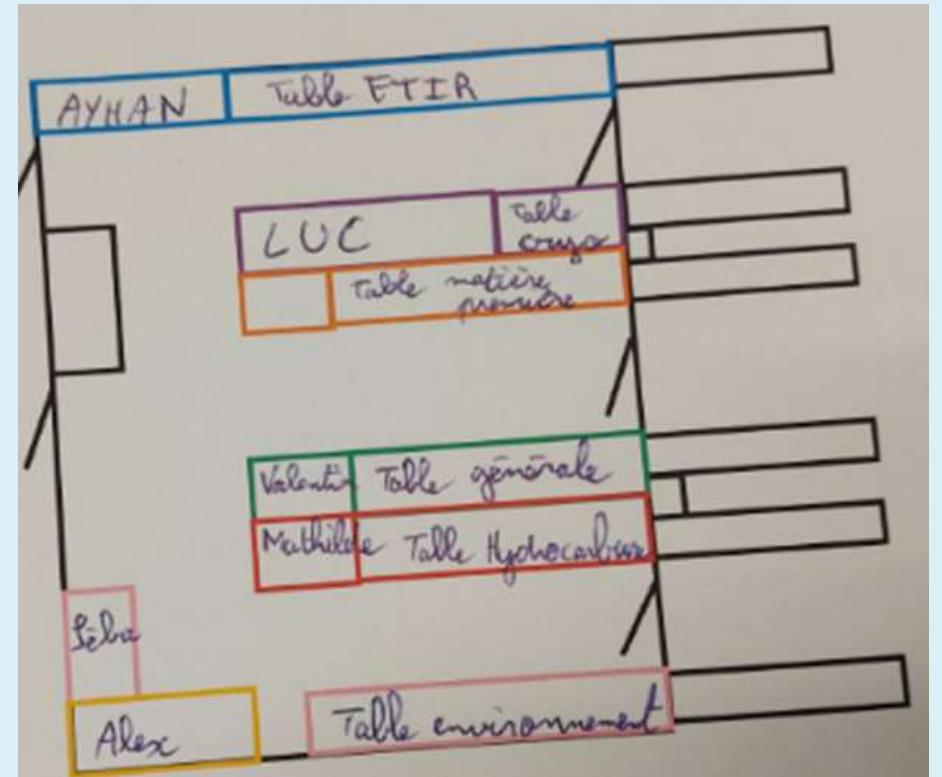 AYHAN
Table ETIR
LUC
Table
cryo
Table matière
première
Valentin
Table générale
Mathilde
Table Hydrocarbure
Séba
Alex
Table environnement